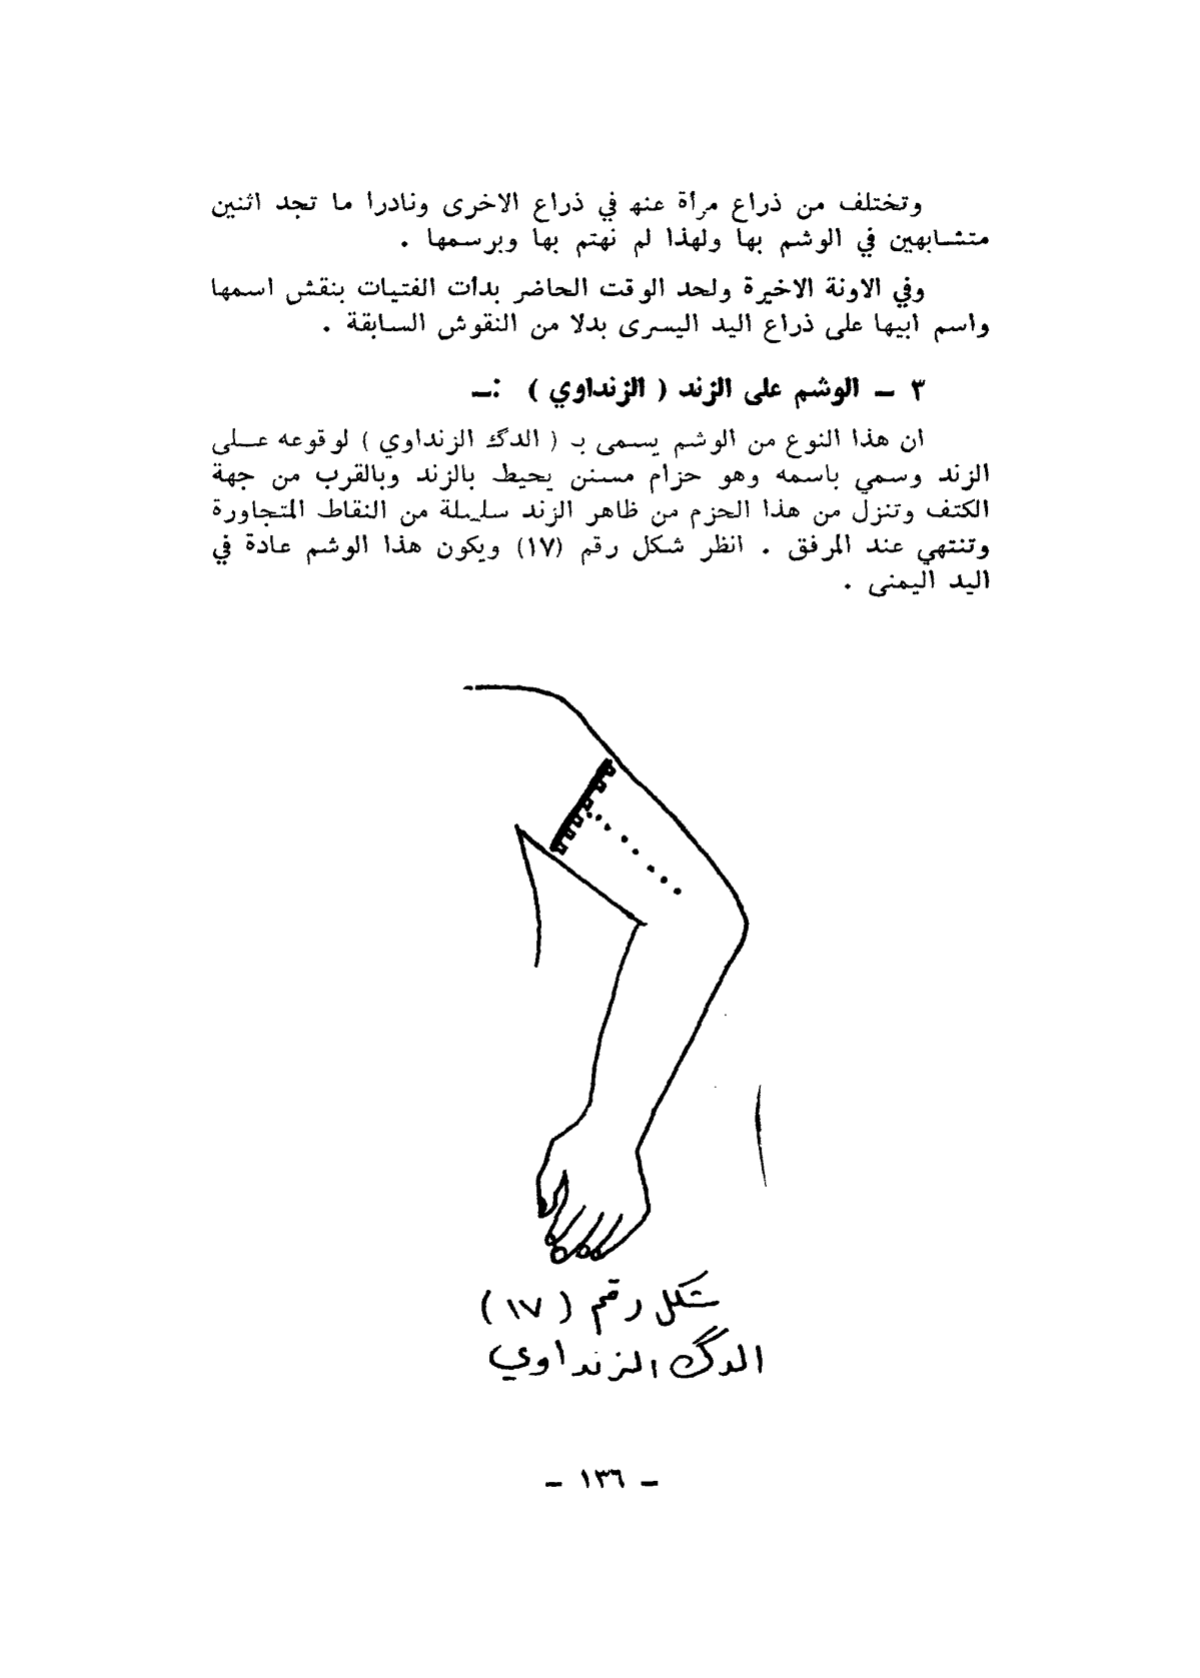 وتختلف من ذراع مرأة عنها في ذراع الاخرى ونادرا ما تجد اثنين
متشابهين في الوشم بها ولهذا لم نهتم بها وبرسمها .
وفي الاونة الاخيرة ولحد الوقت الحاضر بدأت الفتيات بنقش اسمها
واسم ابيها على ذراع اليد اليسرى بدلا من النقوش السابقة .
٣ ــ الوشم على الزند ( الزنداوي ) :ــ
ان هذا النوع من الوشم يسمى بـ ( الدگ الزنداوي ) لوقوعه على
الزند وسمي باسمه وهو حزام مسنن يحيط بالزند وبالقرب من جهة
الكتف وتنزل من هذا الحزم من ظاهر الزند سلسلة من النقاط المتجاورة
وتنتهي عند المرفق . انظر شكل رقم (١٧) ويكون هذا الوشم عادة في
اليد اليمنى .
شكل رقم ( ١٧ )
الدگ الزنداوي
ــ ١٣٦ ــ